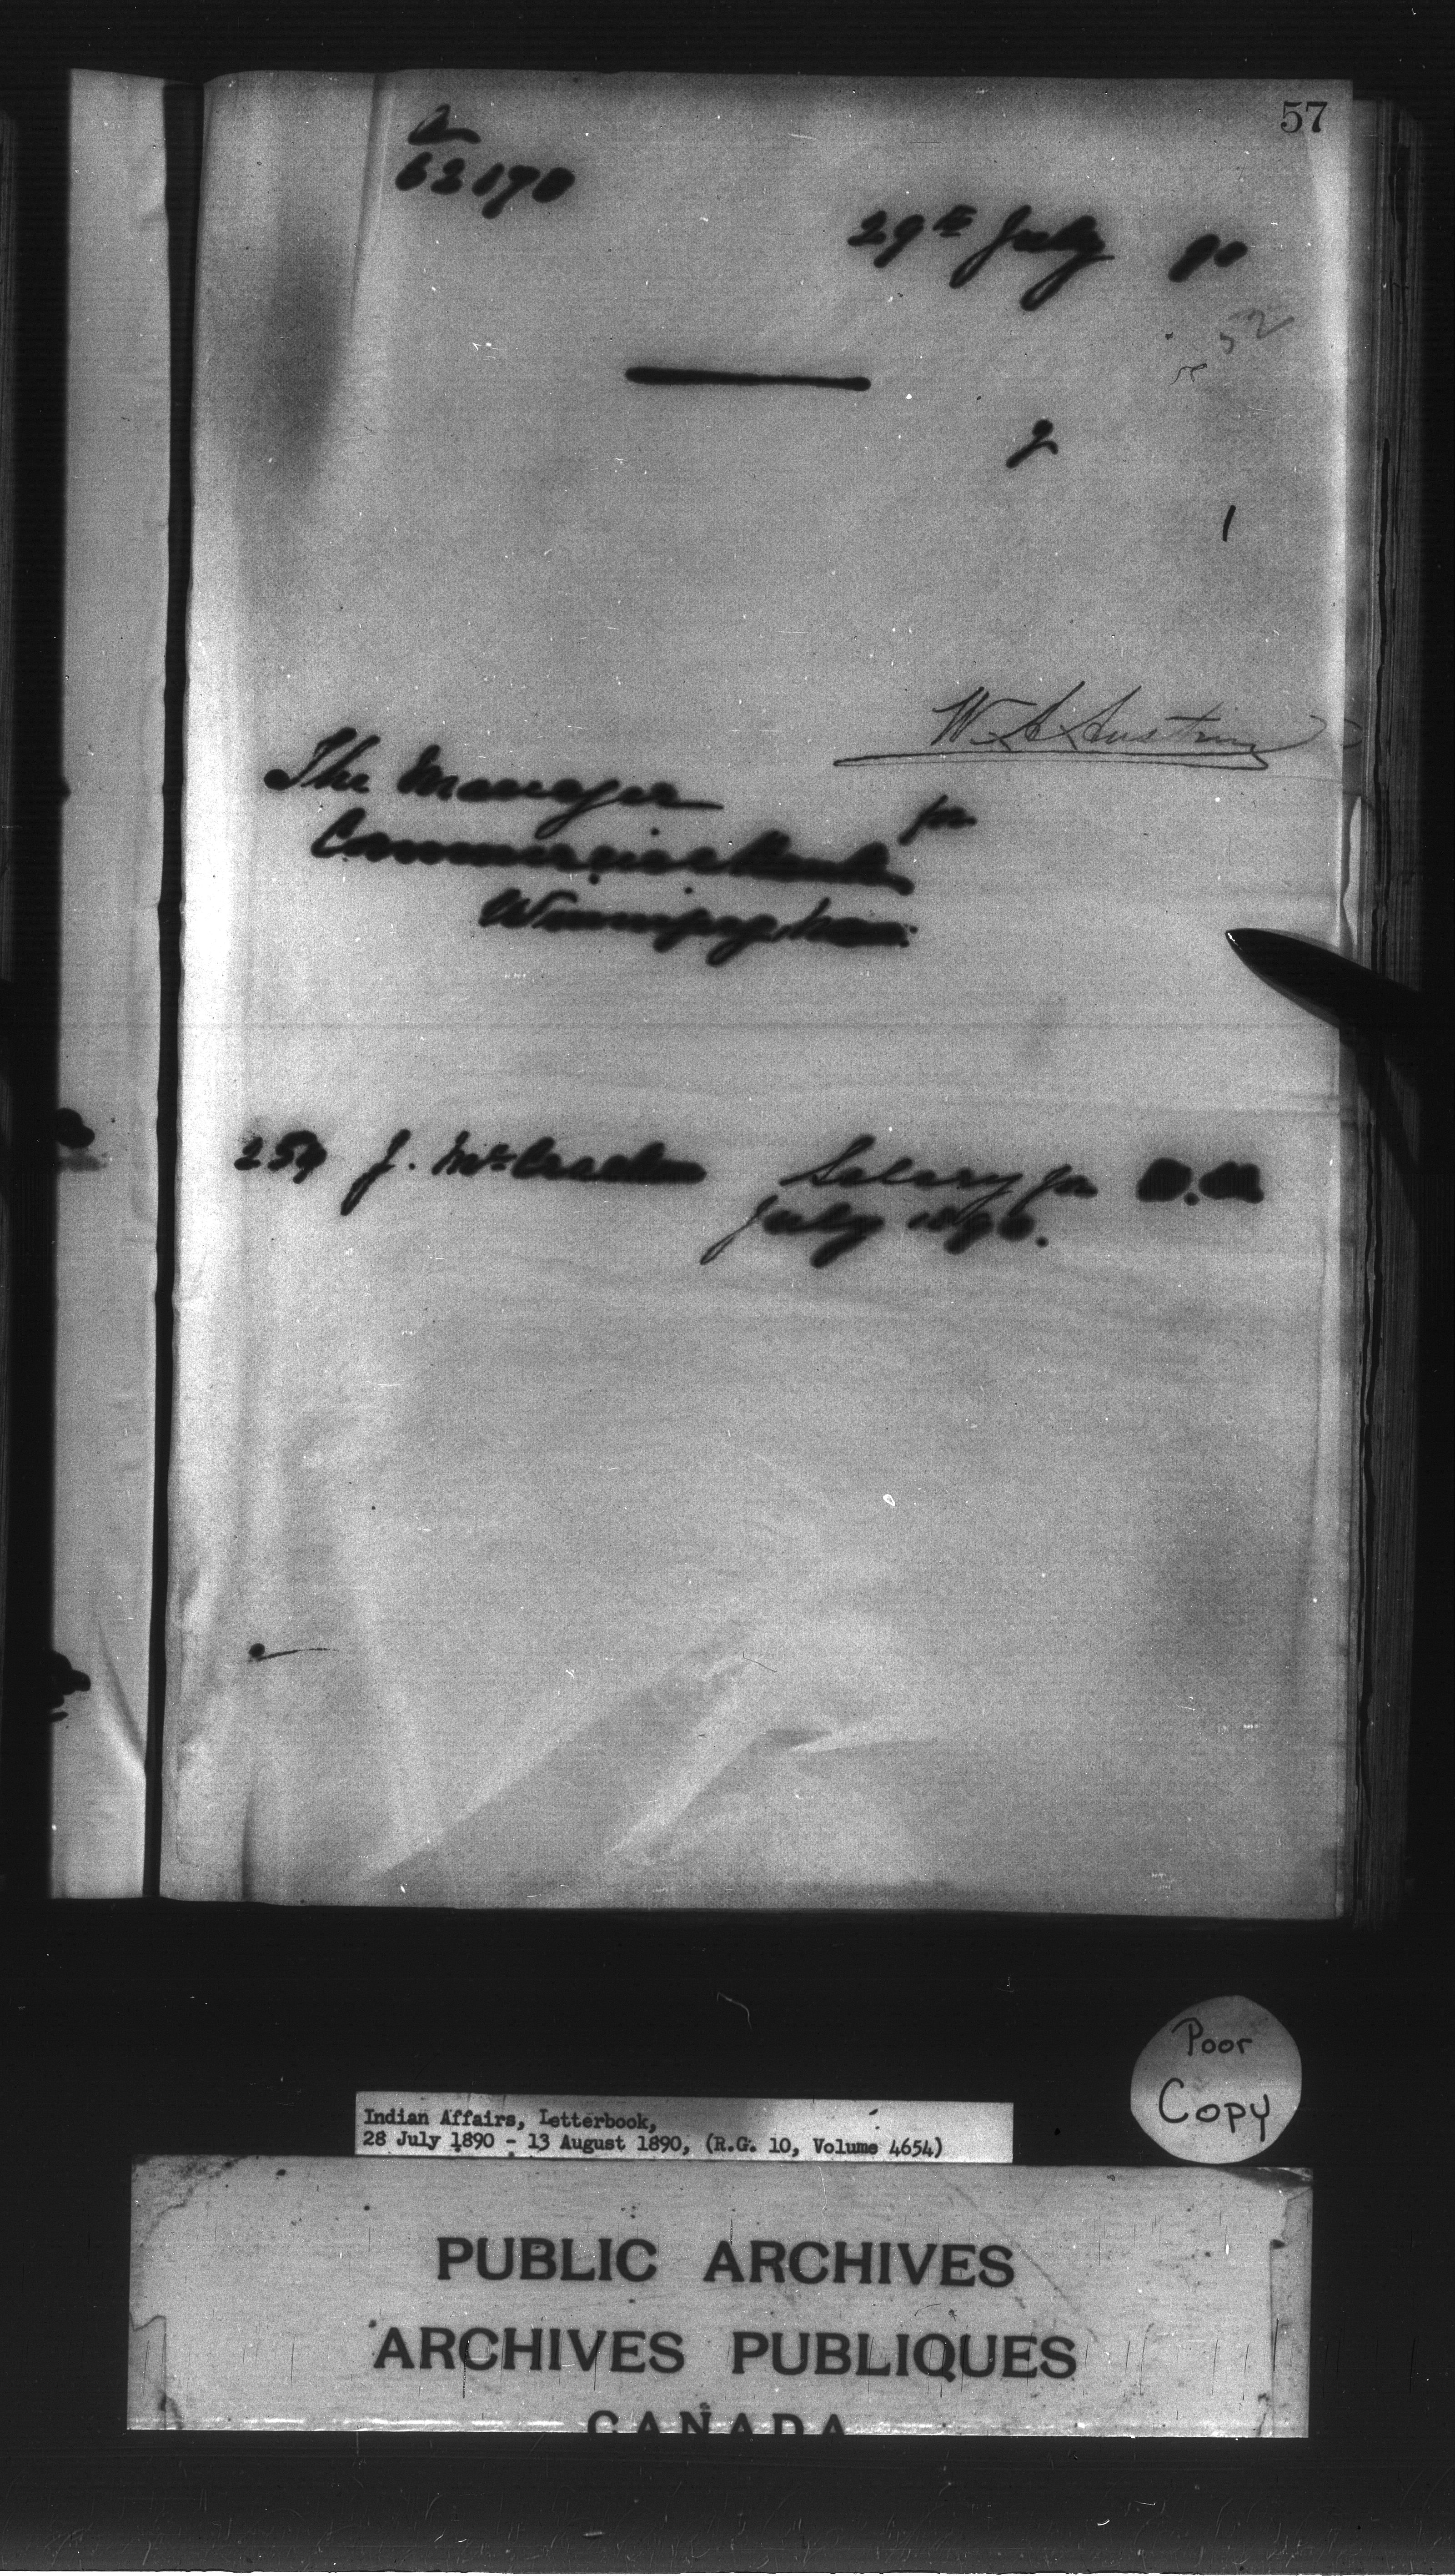 57
62170
29th July 90
52
2
1
W. A. Austin
The Manager
for
Commercial Bank
Winnipeg, Man:
254 J. McCracken Salary for
July 1890.
Poor
Copy
Indian Affairs, Letterbook,
28 July 1890 - 13 August 1890, (R.G. 10, Volume 4654)
PUBLIC ARCHIVES
ARCHIVES PUBLIQUES
CANADA